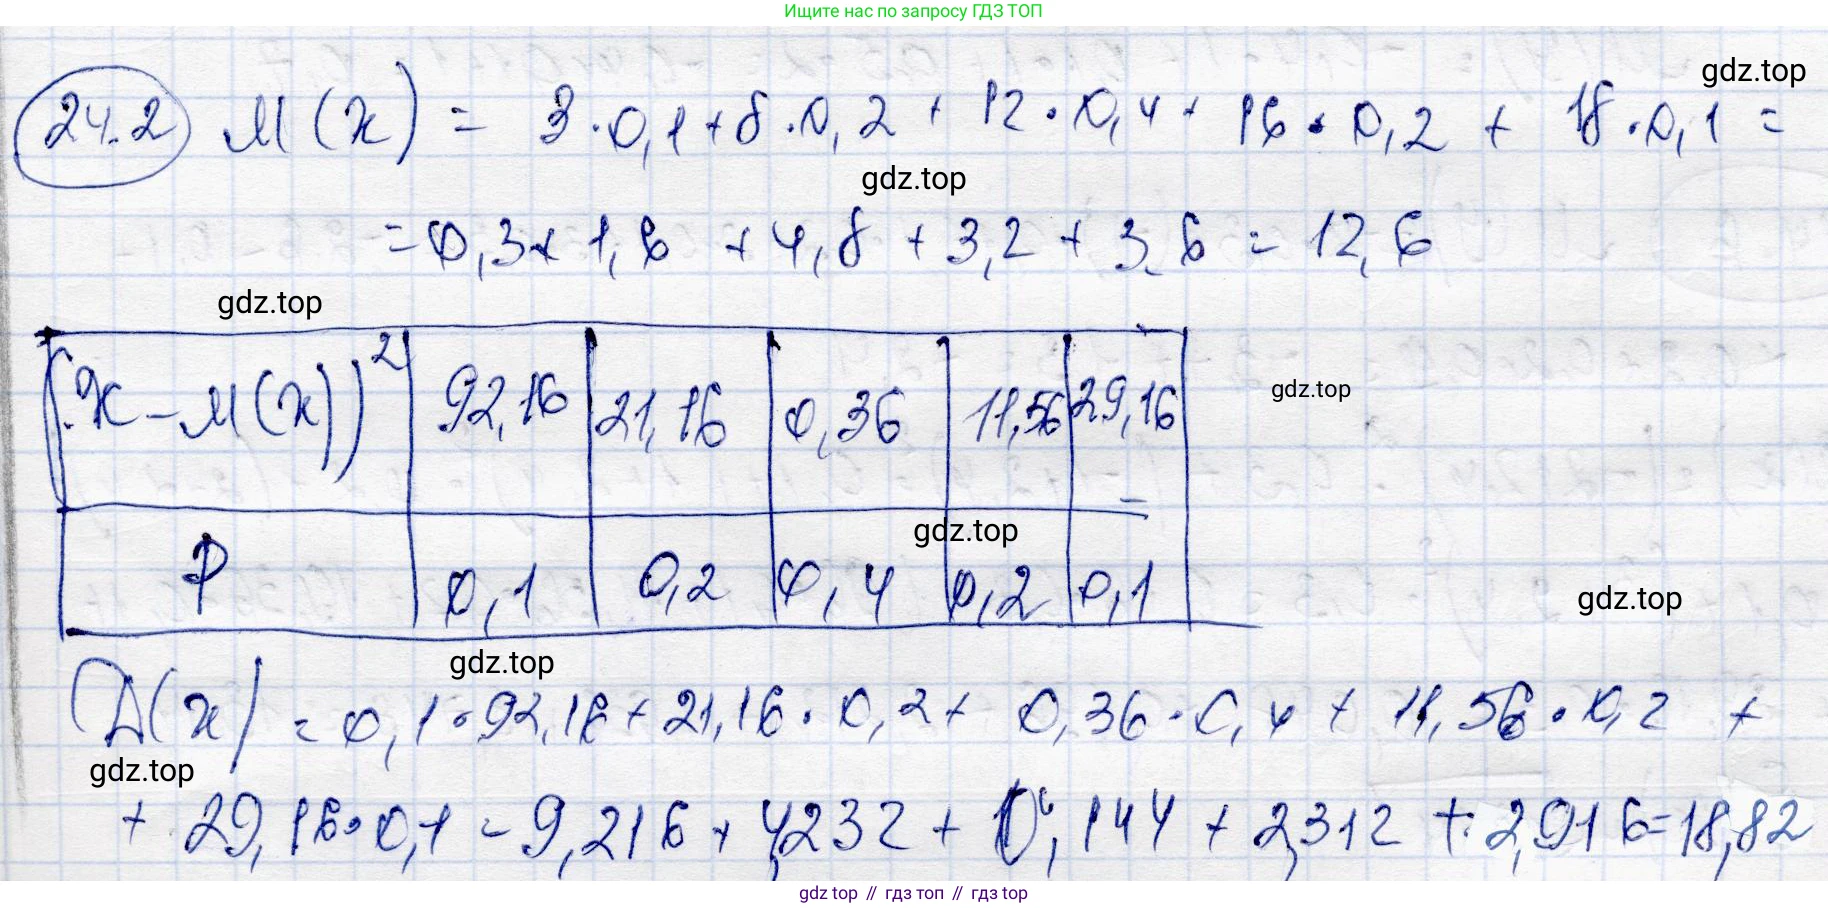 Ищите нас по запросу ГДЗ ТОП
gdz.top
24.2 M(x) = 3·0,1+8·0,2+12·0,4+16·0,2+18·0,1=
gdz.top
=0,3+1,6+4,8+3,2+3,6=12,6
gdz.top
(x-M(x))² 92,16 21,16 0,36 11,56 29,16
gdz.top
gdz.top
P 0,1 0,2 0,4 0,2 0,1
gdz.top
gdz.top
D(x)=0,1·92,16+21,16·0,2+0,36·0,4+11,56·0,2+
gdz.top
+29,16·0,1=9,216+4,232+0,144+2,312+2,916=18,82
gdz top // гдз топ // gdz top